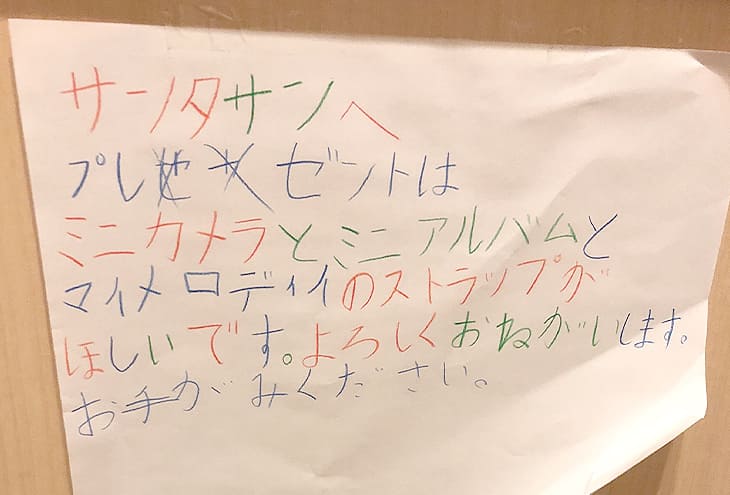 サンタサンへ
プレゼントは
ミニカメラとミニアルバムと
マイメロディイのストラップが
ほしいです。よろしくおねがいします。
お手がみください。